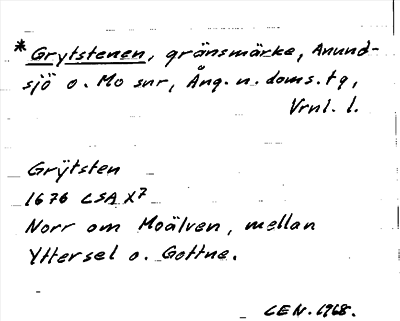 * Grytstenen, gränsmärke, Anund-
sjö o. Mo snr, Ång. n. doms. tg,
Vrnl. l.
Grÿtsten
1676 LSA X7
Norr om Moälven, mellan
Yttersel o. Gottne.
CEN. 1968.